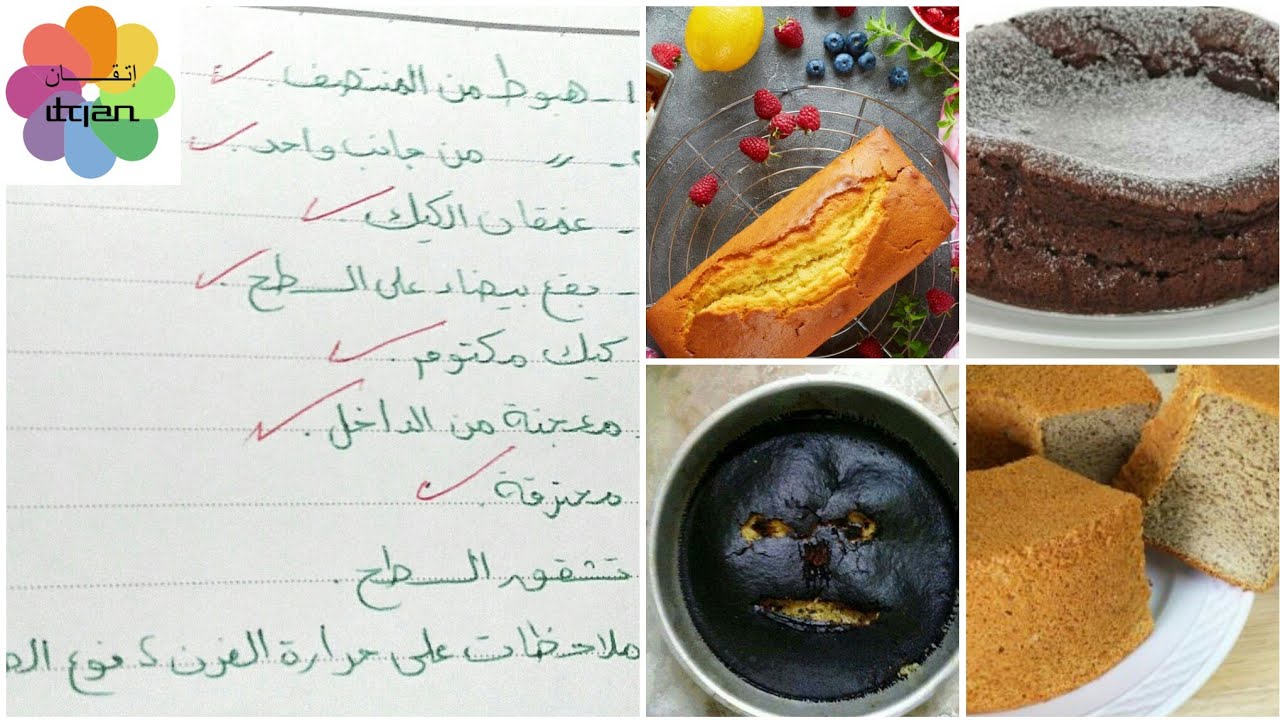 إتقـــان
itqan
1- هبوط من المنتصف.
- 〃 من جانب واحد.
- غمقان الكيك.
- بقع بيضاء على السطح.
كيك مكتوم.
معجنة من الداخل.
محترقة.
تشقق السطح.
ملاحظات على حرارة الفرن & نوع